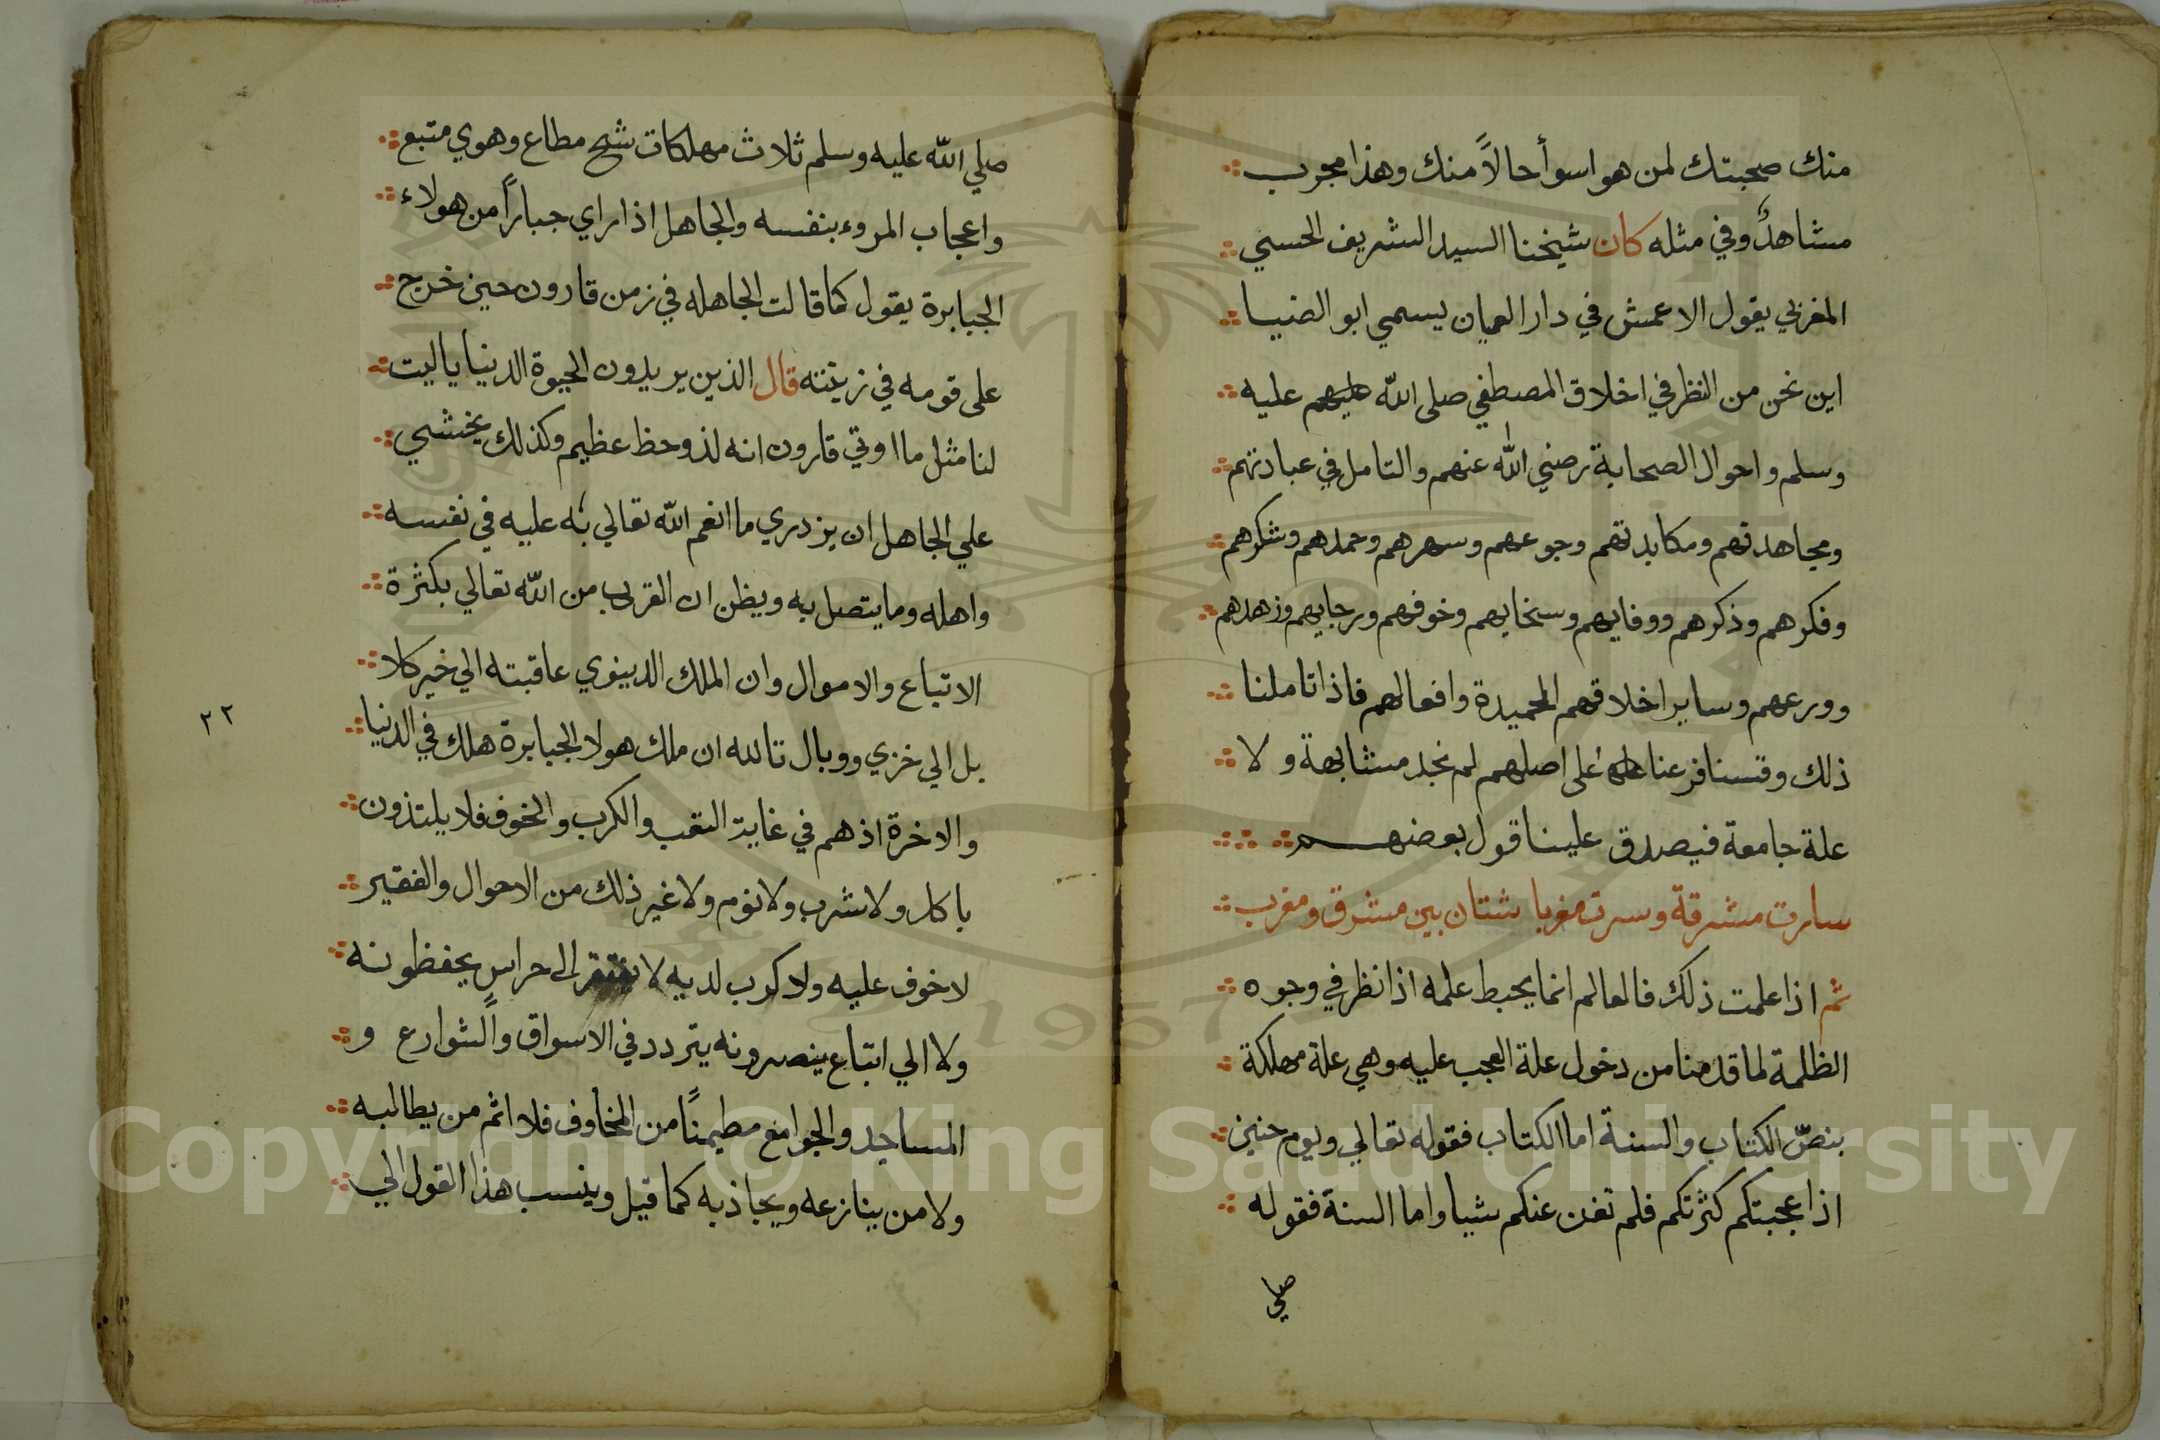 منك صحبتك لمن هو اسوأ حالاً منك وهذا مجرب
مشاهدٌ وفي مثله كان شيخنا السيد الشريف الحسني
المغربي يقول الاعمش في دار العميان يسمي ابو الضيا
اين نحن من النظر في اخلاق المصطفي صلى الله عليه
وسلم واحوال الصحابة رضي الله عنهم والتامل في عبادتهم
ومجاهدتهم ومكابدتهم وجوعهم وسهرهم وحمدهم وشكرهم
وفكرهم وذكرهم ووفايهم وسخايهم وخوفهم ورجايهم وزهدهم
وورعهم وساير اخلاقهم الحميدة وافعالهم فاذا تاملنا
ذلك وقسنا فرعنا على اصلهم لم نجد مشابهة ولا
علة جامعة فيصدق علينا قول بعضهم
سارت مشرقة وسرت مغربا شتان بين مشرق ومغرب
ثم اذا علمت ذلك فالعالم انما يحبط علمه اذا نظر في وجوه
الظلمة لما قدمنا من دخول علة العجب عليه وهي علة مهلكة
بنصّ الكتاب والسنة اما الكتاب فقوله تعالي ويوم حنين
اذ اعجبتكم كثرتكم فلم تغن عنكم شيا واما السنة فقوله
صلي
صلي الله عليه وسلم ثلاث مهلكات شح مطاع وهوي متبع
واعجاب المروء بنفسه والجاهل اذا راي جباراً من هولاء
الجبابرة يقول كما قالت الجاهله في زمن قارون حين خرج
على قومه في زينته قال الذين يريدون الحيوة الدنيا ياليت
لنا مثل ما اوتي قارون انه لذو حظ عظيم وكذلك يخشي
علي الجاهل ان يزدري ما انعم الله تعالي به عليه في نفسه
واهله وما يتصل به ويظن ان القرب من الله تعالي بكثرة
الاتباع والاموال وان الملك الدينوي عاقبته الي خير كلا
بل الي خزي ووبال تالله ان ملك هولا الجبابرة هلك في الدنيا
والاخرة اذ هم في غاية التعب والكرب والخوف فلا يلتذون
باكل ولا شرب ولا نوم ولا غير ذلك من الاحوال والفقير
لا خوف عليه ولا كرب لديه لا يفتقر الى حراس يحفظونه
ولا الي اتباع ينصرونه يتردد في الاسواق والشوارع و
المساجد والجوامع مطيمناً من المخاوف فلا اثم من يطالبه
ولا من ينازعه ويجاذبه كما قيل وينسب هذا القول الي
٢٢
Copyright © King Saud University
1957